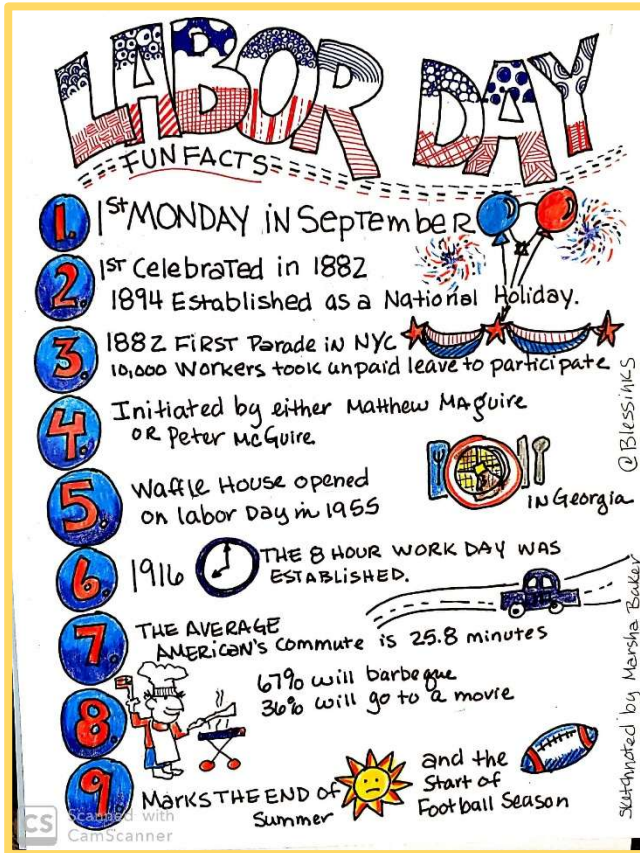 LABOR DAY
FUN FACTS
1. 1st MONDAY in September
2. 1ST Celebrated in 1882
1894 Established as a National Holiday.
3. 1882 FIRST Parade in NYC
10,000 Workers took unpaid leave to participate
4. Initiated by either Matthew Maguire
OR Peter McGuire
5. Waffle House opened
on labor Day in 1955
in Georgia
6. 1916 THE 8 HOUR WORK DAY WAS
ESTABLISHED.
7. THE AVERAGE
AMERICAN'S Commute is 25.8 minutes
8. 67% will barbeque
36% will go to a movie
9. MARKS THE END OF
Summer
and the
Start of
Football Season
@Blessinks
Sketchnoted by Marsha Baker
CS Scanned with
CamScanner